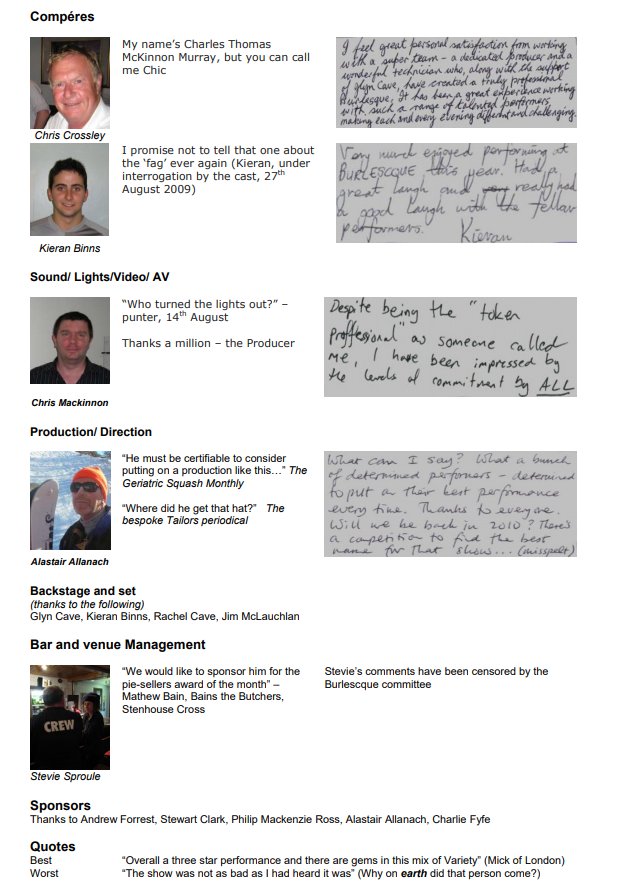 Compéres
My name's Charles Thomas
McKinnon Murray, but you can call
me Chic
I feel great personal satisfaction from working
with a super team – a dedicated producer and a
wonderful technician who, along with the support
of Glyn Cave, have created a truly professional
Burlesque, It has been a great experience working
with such a range of talented performers
making each and every evening different and challenging.
Chris Crossley
I promise not to tell that one about
the 'fag' ever again (Kieran, under
interrogation by the cast, 27th
August 2009)
Very much enjoyed performing at
BURLESCQUE this year. Had a
great laugh and really had
a good laugh with the fellow
performers. Kieran
Kieran Binns
Sound/ Lights/Video/ AV
“Who turned the lights out?” –
punter, 14th August
Thanks a million – the Producer
Despite being the "token
proffesional" as someone called
me, I have been impressed by
the levels of commitment by ALL
Chris Mackinnon
Production/ Direction
“He must be certifiable to consider
putting on a production like this…” The
Geriatric Squash Monthly
“Where did he get that hat?” The
bespoke Tailors periodical
What can I say? What a bunch
of determined performers – determined
to put on their best performance
every time. Thanks to everyone.
Will we be back in 2010? There's
a competition to find the best
name for that show... (misspelt)
Alastair Allanach
Backstage and set
(thanks to the following)
Glyn Cave, Kieran Binns, Rachel Cave, Jim McLauchlan
Bar and venue Management
“We would like to sponsor him for the
pie-sellers award of the month” –
Mathew Bain, Bains the Butchers,
Stenhouse Cross
Stevie’s comments have been censored by the
Burlescque committee
CREW
Stevie Sproule
Sponsors
Thanks to Andrew Forrest, Stewart Clark, Philip Mackenzie Ross, Alastair Allanach, Charlie Fyfe
Quotes
Best “Overall a three star performance and there are gems in this mix of Variety” (Mick of London)
Worst “The show was not as bad as I had heard it was” (Why on earth did that person come?)